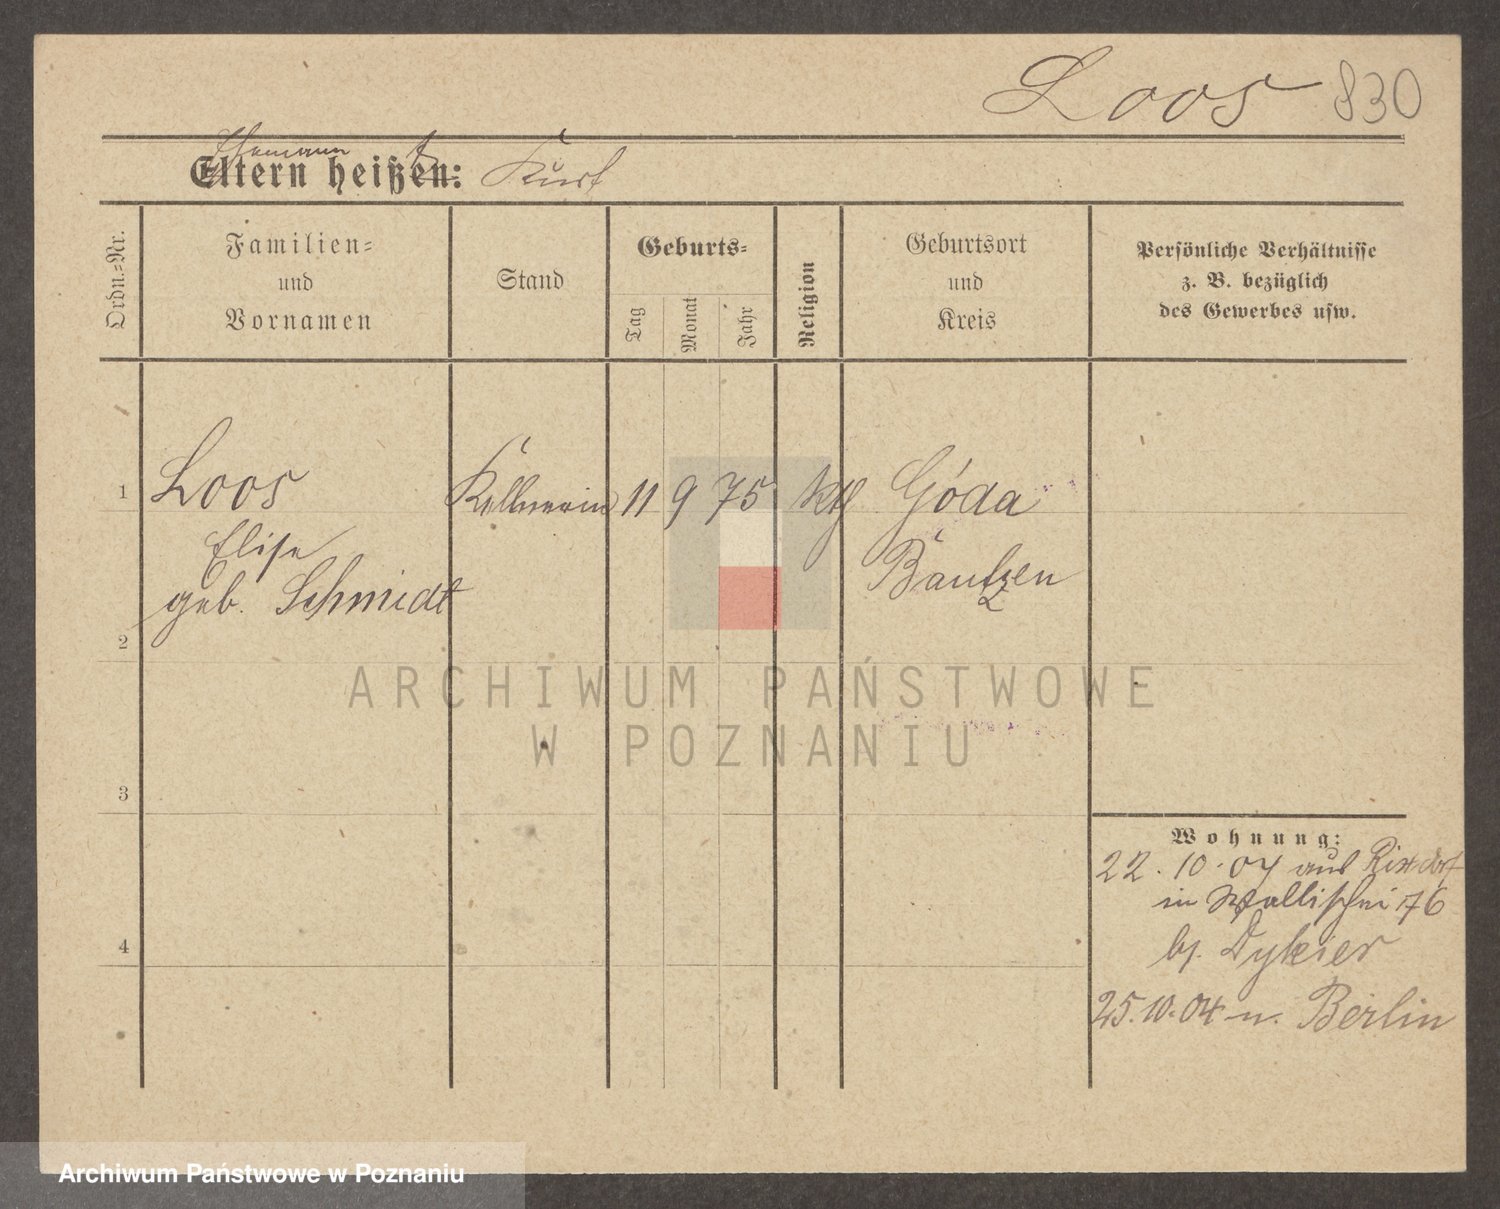 Loos 830
Ehemann t
Eltern heißen: Kurt
Ordn.=Nr.
Familien=
und
Vornamen
Stand
Geburts=
Tag
Monat
Jahr
Religion
Geburtsort
und
Kreis
Persönliche Verhältnisse
z. B. bezüglich
des Gewerbes usw.
1 Loos Kellnerin 11 9 75 kth Göda
Elise Bautzen
geb. Schmidt
2
ARCHIWUM PAŃSTWOWE
W POZNANIU
3
Wohnung:
22. 10. 04 aus Rixdorf
in Wallischei 76
bj. Dykier
4
25.10.04 n. Berlin
Archiwum Państwowe w Poznaniu